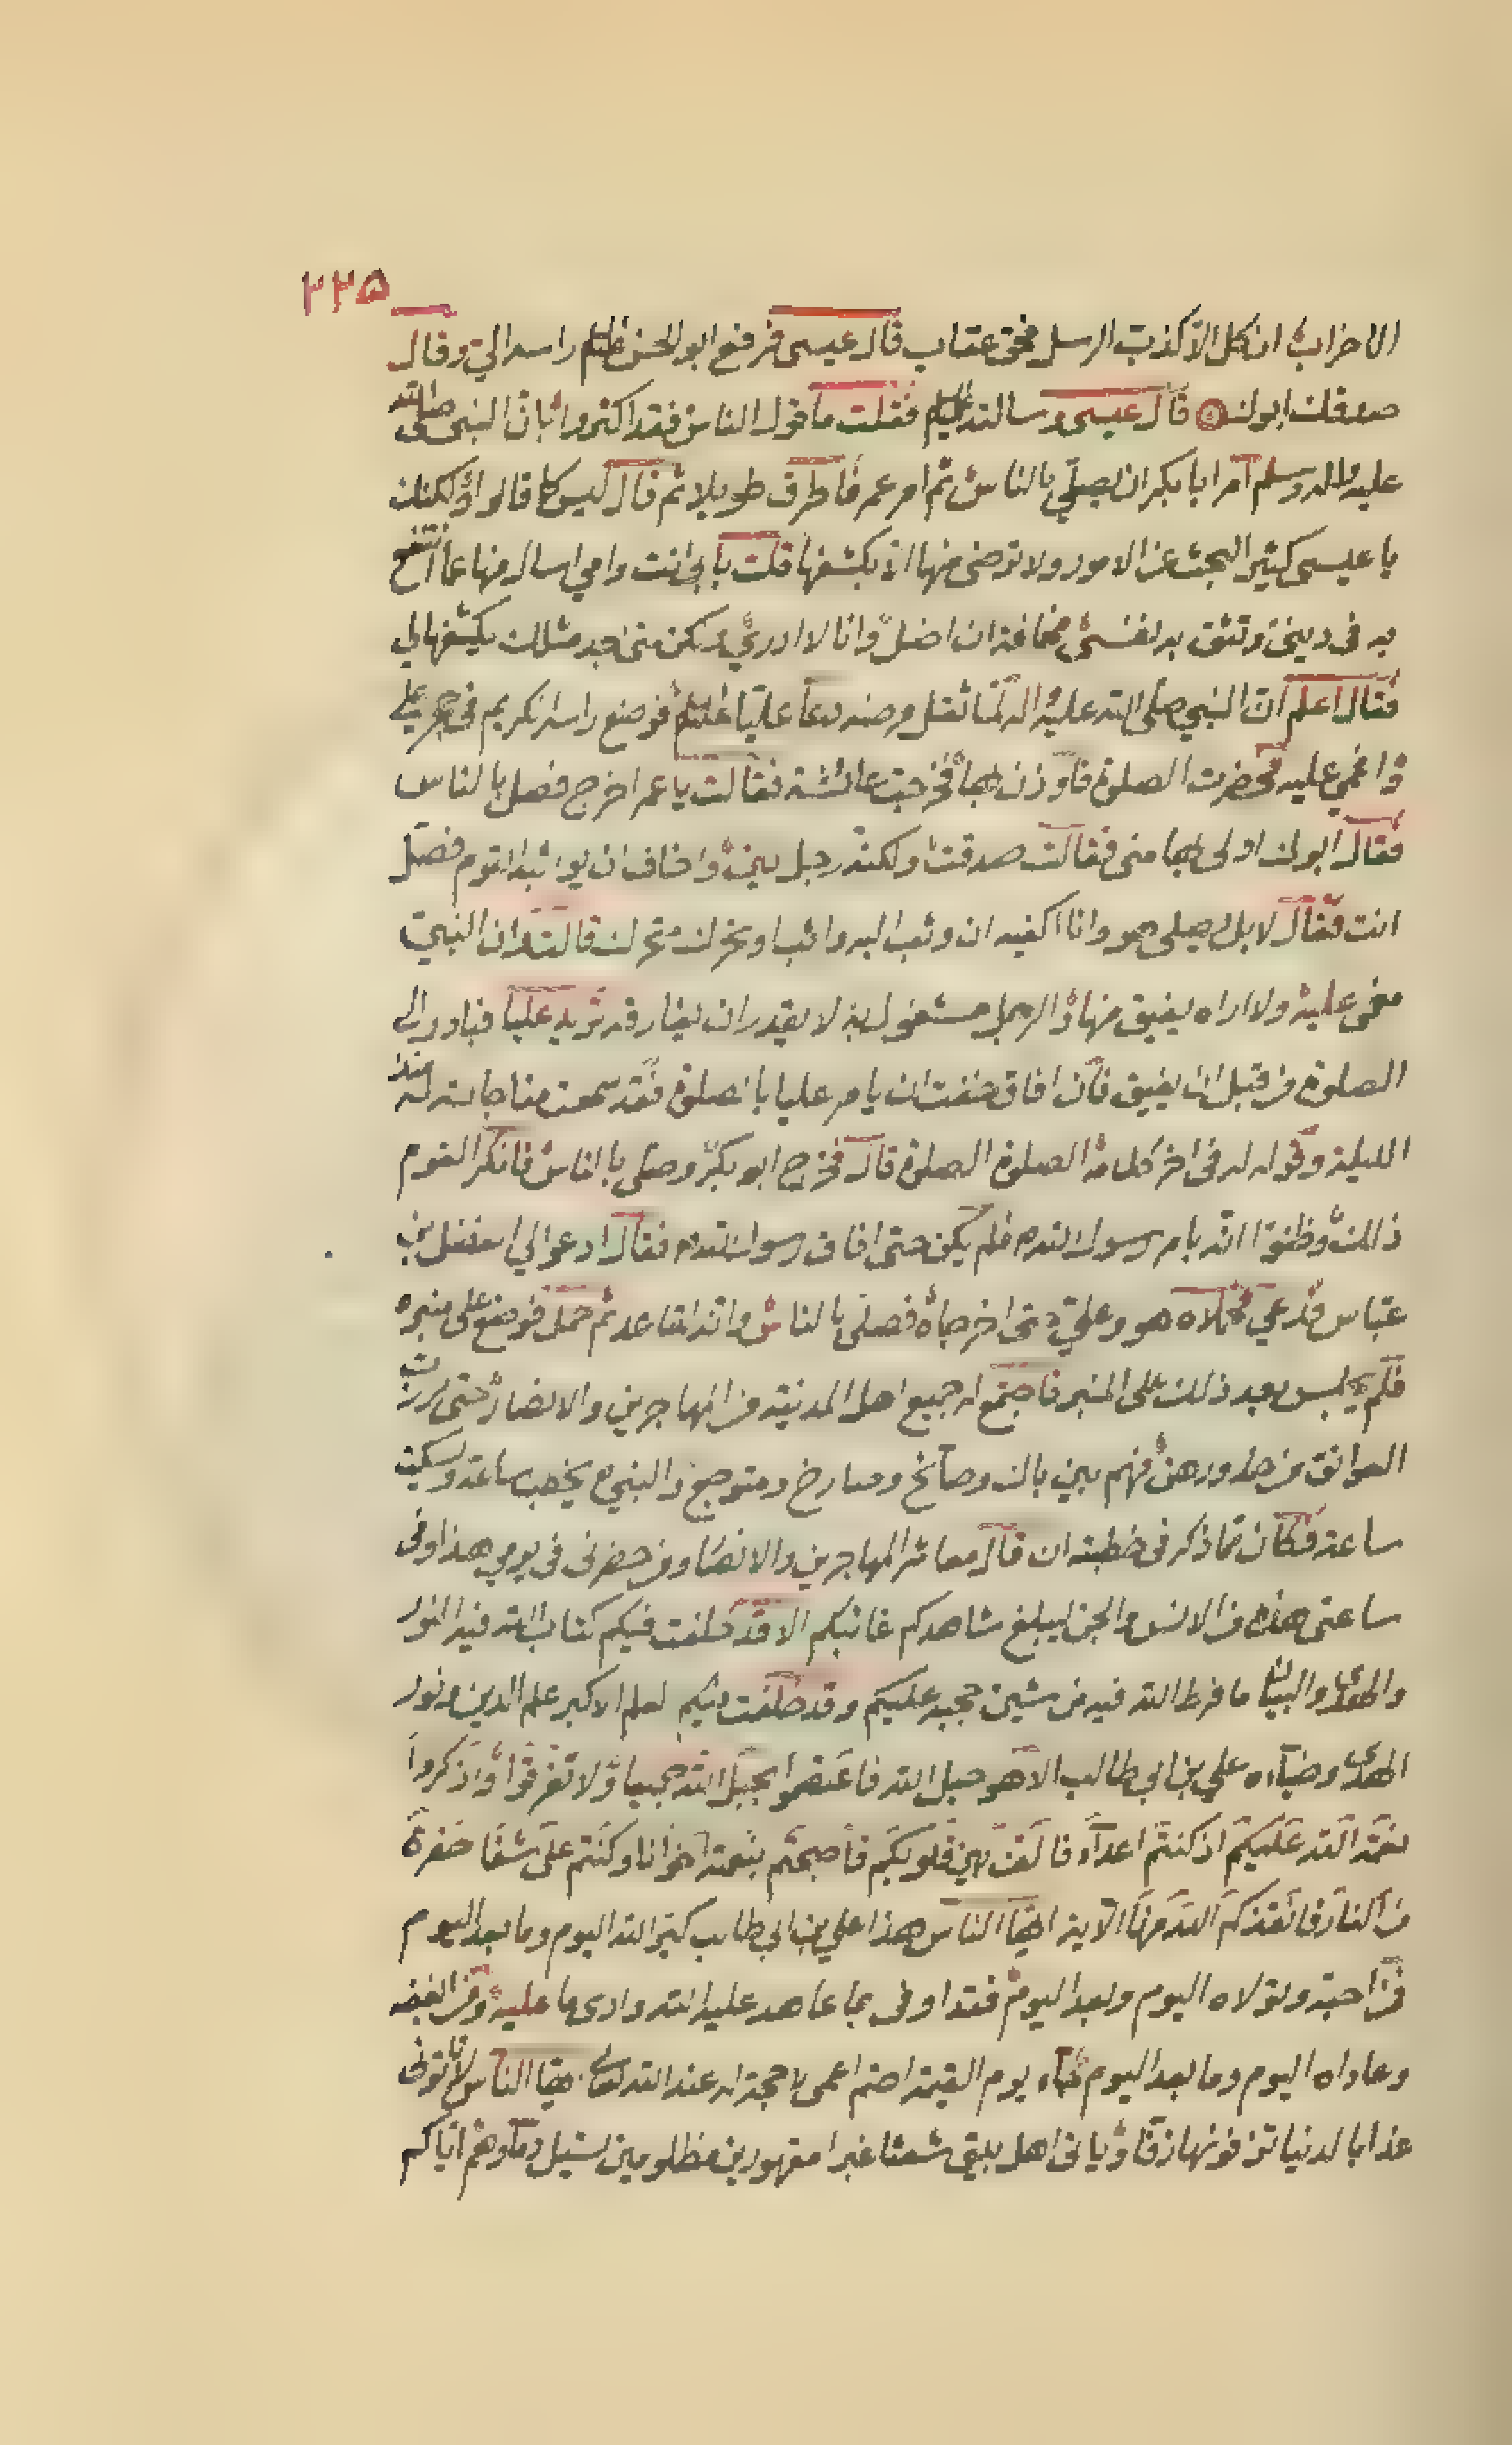 ۲۲۵
الاحزاب ان كل الا كذب الرسل فحق عقاب قال عيسى فرفع ابو الحسن عليه السلام راسه الي وقال
صدقك ابوك قال عيسى وسالته عليه السلام فقلت ما تقول الناس فقد اكثروا بان النبي صلى الله
عليه واله وسلم امر ابا بكر ان يصلي بالناس ثم امر عمر فاطرق طويلا ثم قال ليس كما قالوا ولكنك
يا عيسى كثير البحث عن الامور ولا ترضى منها الا بكشفها قلت بابي انت وامي اسال منها عما انتفع
به في ديني وتثق به نفسي مخافة ان اضل وانا لا ادري ولكن متى اجد مثلك يكشفها لي
فقال اعلم ان النبي صلى الله عليه واله لما ثقل مرضه دعا عليا عليه السلام فوضع راسه الكريم في حجر علي
واغمي عليه فحضرت الصلوة فاوذن بها فخرجت عائشة فقالت يا عمر اخرج فصل بالناس
فقال ابوك اولى بها مني فقالت صدقت ولكنه رجل لين واخاف ان يواثبه القوم فصل
انت فقال لا بل يصلي هو وانا اكفيه ان وثب اليه واثب او تحرك متحرك قالت ان النبي
مغمى عليه ولا اراه يفيق منها والرجل مشغول به لا يقدر ان يفارقه تريد عليا فبادر الى
الصلوة من قبل ان يفيق فان افاق خفت ان يامر عليا بالصلوة فقد سمعت مناجاته له منذ
الليلة وقوله له في اخر كلامه الصلوة الصلوة قال فخرج ابو بكر وصلى بالناس فانكر القوم
ذلك وظنوا انه بامر رسول الله فلم يكبر حتى افاق رسول الله فقال ادعوا لي الفضل بن
عباس فدعي فحملاه هو وعلي حتى اخرجاه فصلى بالناس وانه لقاعد ثم حمل فوضع على منبره
فلم يجلس بعد ذلك على المنبر فاجتمع له جميع اهل المدينة من المهاجرين والانصار حتى برزت
العواتق من خدورهن فهم بين باك وصائح وصارخ ومتوجع والنبي يخطب ساعة ويسكت
ساعة فكان مما ذكر في خطبته ان قال معاشر المهاجرين والانصار ومن حضرني في يومي هذا وفي
ساعتي هذه من الانس والجن ليبلغ شاهدكم غائبكم الا قد خلفت فيكم كتاب الله فيه النور
والهدى والبيان ما فرط الله فيه من شيئ حجته عليكم وقد خلفت فيكم لعلم الاكبر علم الدين ونور
الهدى وضياءه علي بن ابي طالب الا هو حبل الله فاعتصموا بحبل الله جميعا ولا تفرقوا واذكروا
نعمة الله عليكم اذ كنتم اعداء فالف بين قلوبكم فاصبحتم بنعمته اخوانا وكنتم على شفا حفرة
من النار فانقذكم الله منها الاية ايها الناس هذا علي بن ابي طالب كنز الله اليوم وما بعد اليوم
من احبه وتولاه اليوم وبعد اليوم فقد اوفى بما عاهد عليه الله وادى ما عليه ومن ابغضه
وعاداه اليوم وما بعد اليوم جاء يوم القيمة اصم اعمى لا حجة له عند الله تعالى ايها الناس لا تاتوني
غدا بالدنيا تزفونها زفا وياتي اهل بيتي شعثا غبرا مقهورين مظلومين تسيل دماؤهم اياكم